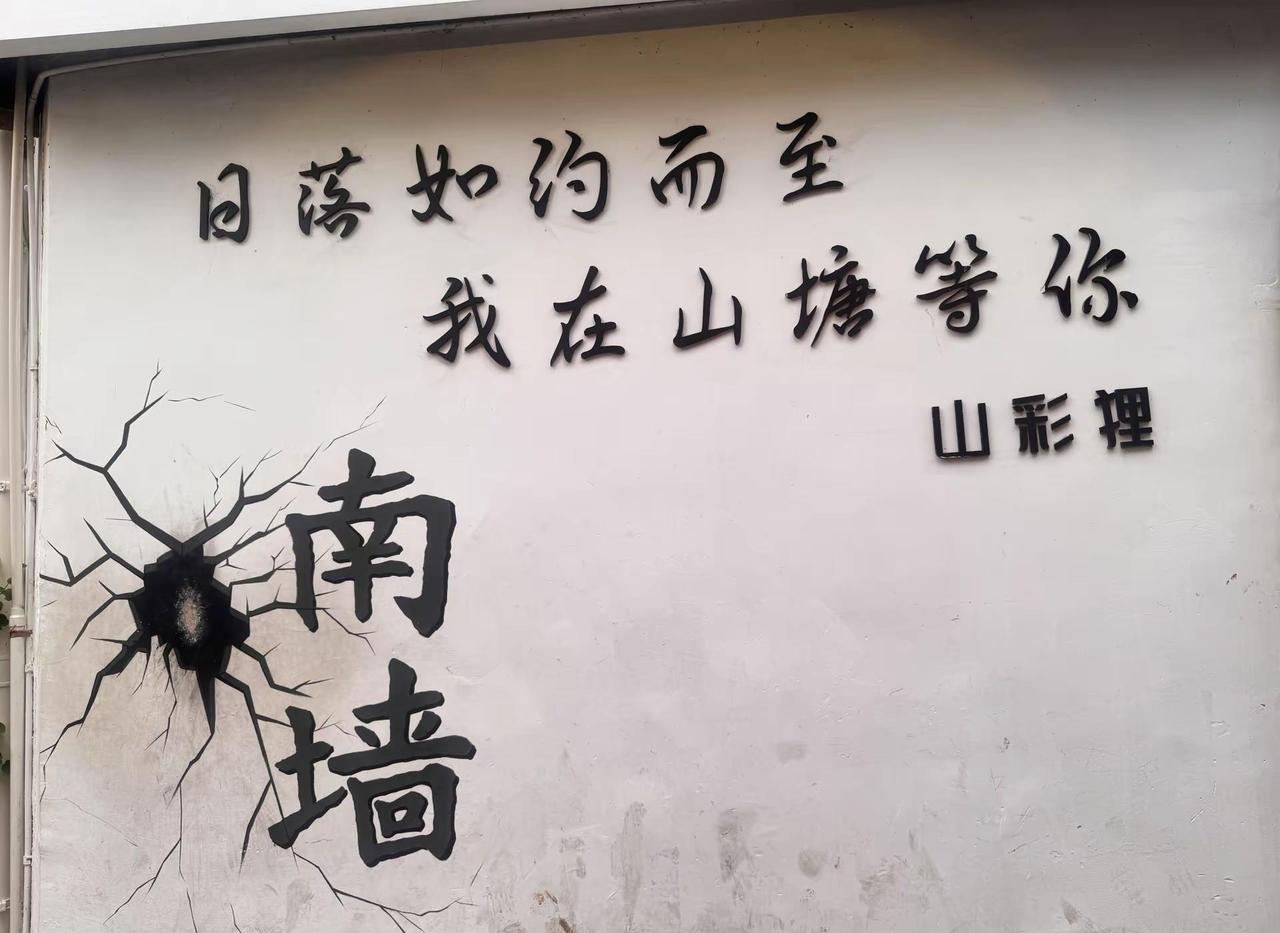 日落如约而至
我在山塘等你
山彩狸
南墙